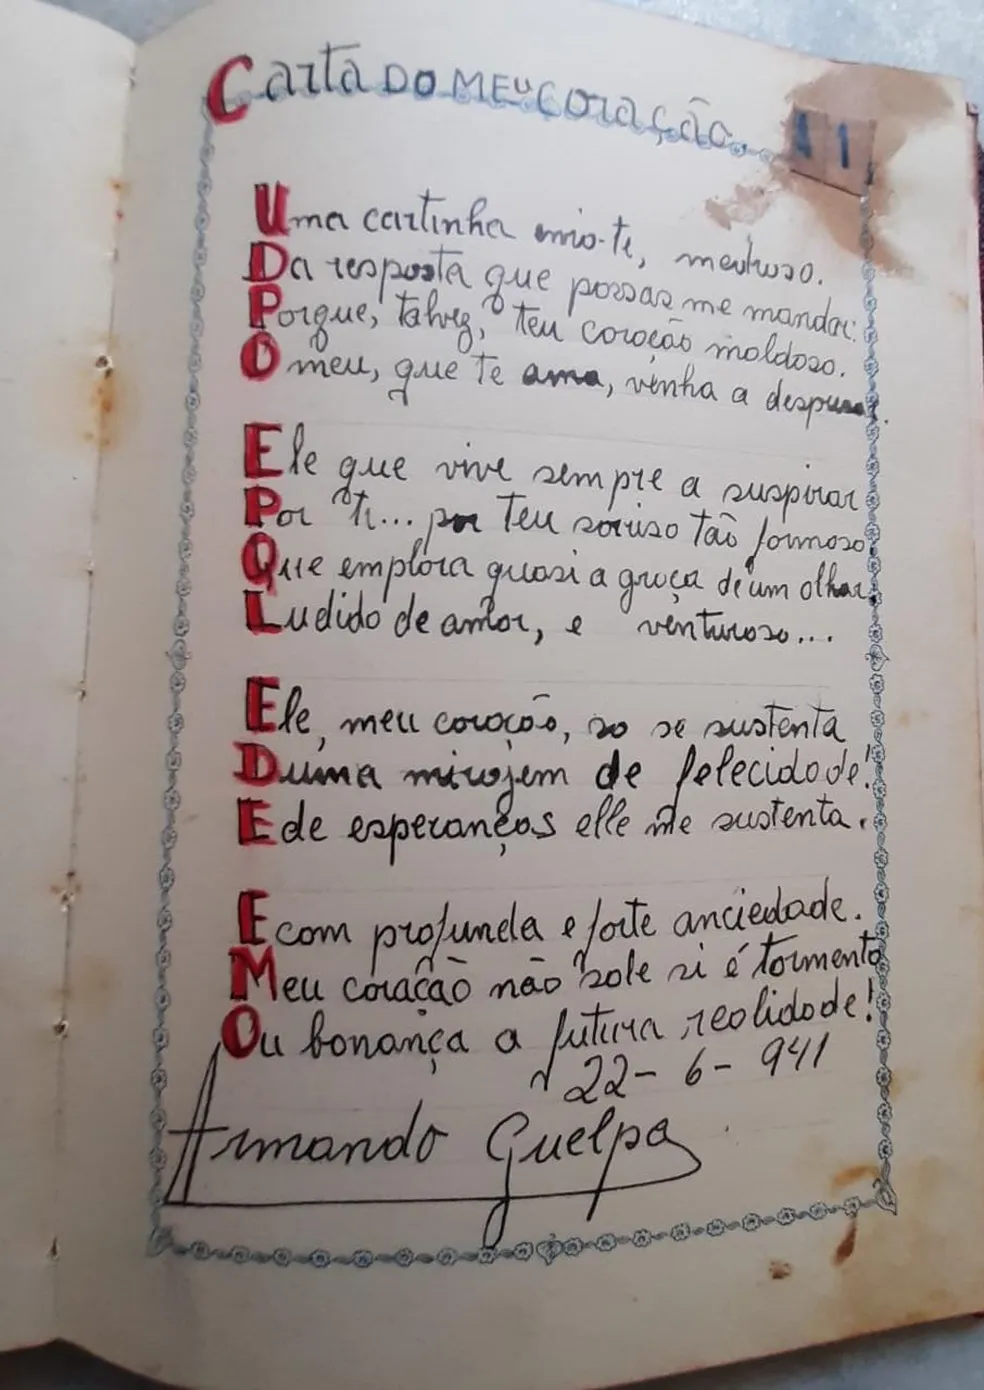 Carta DO MEU Coração.
41
Uma cartinha envio-te, mentroso.
Da resposta que possas me mandar:
Porque, talvez, teu coroção moldoso.
O meu, que te ama, venha a desprezar.
Ele que vive sempre a suspirar
Por ti... por teu sorriso tão formoso
Que emplora quasi a graça de um olhar
Ludido de amor, e venturoso...
Ele, meu coroção, so se sustenta
Duma mirajem de felecidade!
E de esperanças elle me sustenta.
E com profunda e forte anciedade.
Meu coração não sole si é tormento
Ou bonança a futura realidade!
22-6-941
Armando Guelpa